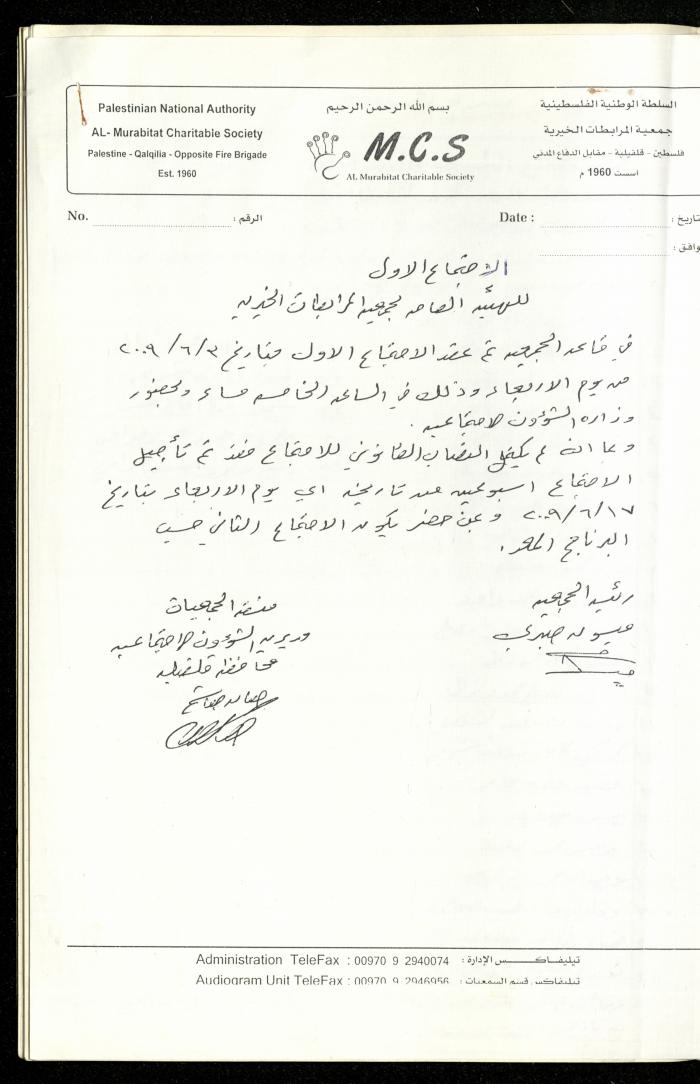 Palestinian National Authority
AL- Murabitat Charitable Society
Palestine - Qalqilia - Opposite Fire Brigade
Est. 1960
بسم الله الرحمن الرحيم
M.C.S
AL Murabitat Charitable Society
السلطة الوطنية الفلسطينية
جمعية المرابطات الخيرية
فلسطين - قلقيلية - مقابل الدفاع المدني
اسست 1960 م
No. الرقم :
Date : تاريخ :
وافق :
الاجتماع الاول
للهيئه العامه لجمعيه المرابطات الخيريه
في قاعه الجمعيه تم عقد الاجتماع الاول بتاريخ ٢٠٠٩/٦/٣
من يوم الاربعاء وذلك في الساعه الخامسه مساء وبحضور
وزاره الشؤون الاجتماعيه .
وبما انه لم يكتمل النصاب القانوني للاجتماع فقد تم تأجيل
الاجتماع اسبوعين من تاريخه اي يوم الاربعاء بتاريخ
٢٠٠٩/٦/١٧ وبمن حضر يكون الاجتماع الثاني حسب
البرنامج المعد .
رئيسه الجمعيه
ميسونه صبري
الجمعيات
مديريه الشؤون الاجتماعيه
محافظه قلقيليه
Administration TeleFax : 00970 9 2940074 تيليفـاكـــس الإدارة :
Audiogram Unit TeleFax : 00970 9 2946956 تيليفاكس قسم السمعيات :